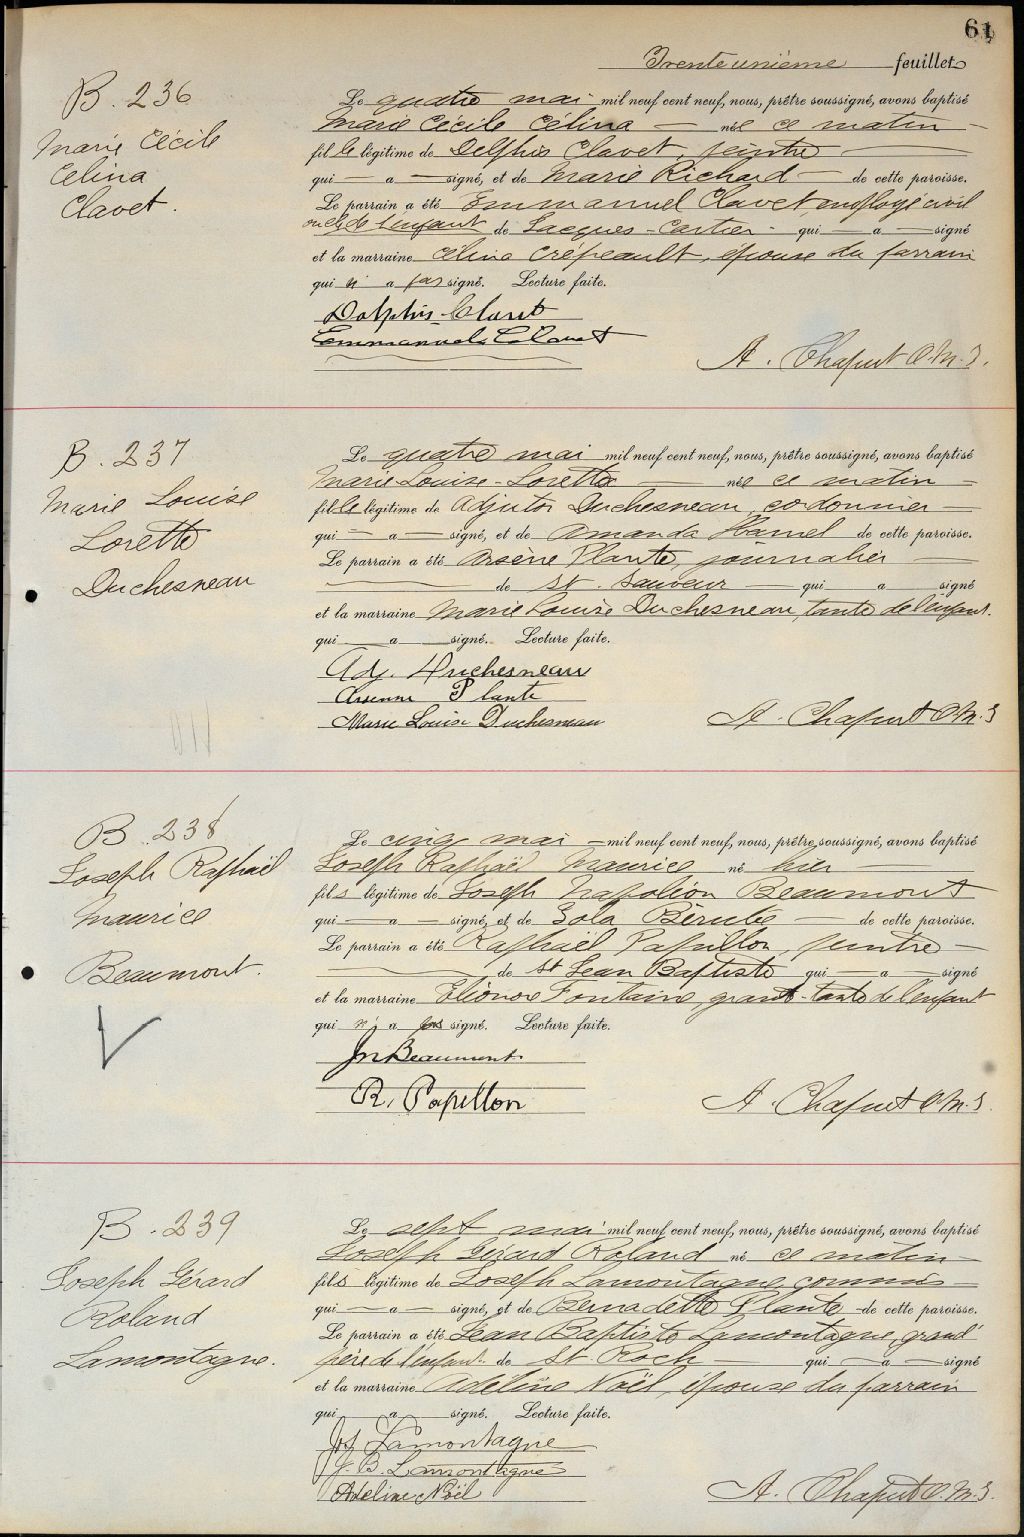 61
Trente unième feuillet
B. 236
Marie Cécile
Célina
Clavet.
Le quatre mai mil neuf cent neuf, nous, prêtre soussigné, avons baptisé
Marie Cécile Célina — née ce matin —
fille légitime de Delphis Clavet, peintre —
qui — a — signé, et de Marie Richard — de cette paroisse.
Le parrain a été Emmanuel Clavet, employé civil
oncle de l'enfant de Jacques-Cartier - qui — a — signé
et la marraine Célina Crépeault, épouse du parrain
qui n' a pas signé. Lecture faite.
Delphis Clavet
Emmanuel Clavet
A. Chaput O.M.I.
B. 237
Marie Louise
Lorette
Duchesneau
Le quatre mai mil neuf cent neuf, nous, prêtre soussigné, avons baptisé
Marie Louise-Lorette — née ce matin —
fille légitime de Adjutor Duchesneau, cordonnier —
qui — a — signé, et de Amanda Hamel de cette paroisse.
Le parrain a été Arsène Plante, journalier —
— de St. Sauveur — qui — a — signé
et la marraine Marie Louise Duchesneau, tante de l'enfant.
qui — a — signé. Lecture faite.
Adj. Duchesneau
Arsenne Plante
Marie Louise Duchesneau
A. Chaput O.M.I
B. 238
Joseph Raphaël
Maurice
Beaumont.
Le cinq mai — mil neuf cent neuf, nous, prêtre soussigné, avons baptisé
Joseph Raphaël Maurice né hier —
fils légitime de Joseph Napoléon Beaumont
qui — a — signé, et de Zola Bérubé — de cette paroisse.
Le parrain a été Raphaël Papillon, peintre —
— de St Jean Baptiste qui — a — signé
et la marraine Eléonore Fontaine, grand-tante de l'enfant
qui n' a pas signé. Lecture faite.
Jn Beaumont
R. Papillon
A. Chaput O.M.I.
B. 239
Joseph Gérard
Roland
Lamontagne.
Le sept mai mil neuf cent neuf, nous, prêtre soussigné, avons baptisé
Joseph Gérard Roland né ce matin —
fils légitime de Joseph Lamontagne, commis —
qui — a — signé, et de Bernadette Plante - de cette paroisse.
Le parrain a été Jean Baptiste Lamontagne, grand'
père de l'enfant de St Roch — qui — a — signé
et la marraine Adeline Noël, épouse du parrain
qui — a — signé. Lecture faite.
Jos Lamontagne
J. B. Lamontagne
Adeline Noël
A. Chaput O.M.I.